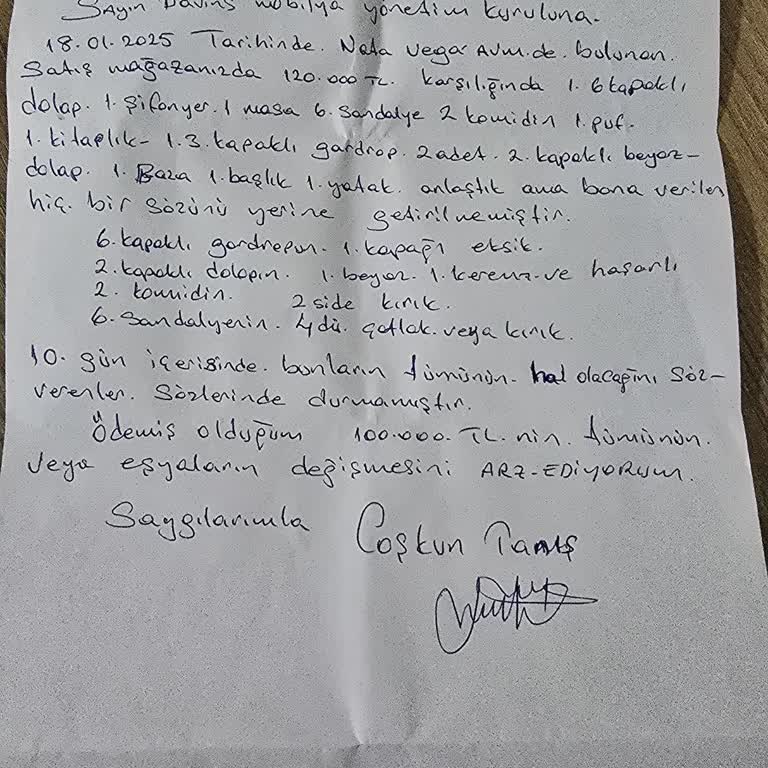 SAYIN Davins mobilya yönetim kuruluna.
18.01.2025 Tarihinde. Nata vega AVM.de. bulunan.
Satış mağazanızda 120.000 TL. karşılığında 1. 6 kapaklı
dolap. 1. şifonyer. 1 masa 6. sandalye 2 komidin 1. puf.
1. kitaplık- 1. 3. kapaklı gardrop. 2 adet. 2. kapaklı beyaz-
dolap. 1. Baza 1. başlık 1. yatak. anlaştık ama bana verilen
hiç. bir sözünü yerine getirilmemiştir.
6. kapaklı gardrepun. 1. kapağı eksik.
2. kapaklı dolapın. 1. beyaz. 1. kerem-ve hasarlı
2. komidin. 2 side kırık.
6. sandalyenin. 4 dü. çatlak. veya kırık.
10. gün içerisinde. bunların tümünün. hal olacağını söz-
verenler. sözlerinde durmamıştır.
Ödemiş olduğum 100.000. TL. nin. tümünün.
veya eşyaların değişmesini ARZ-EDİYORUM.
Saygılarımla Coşkun Tanış